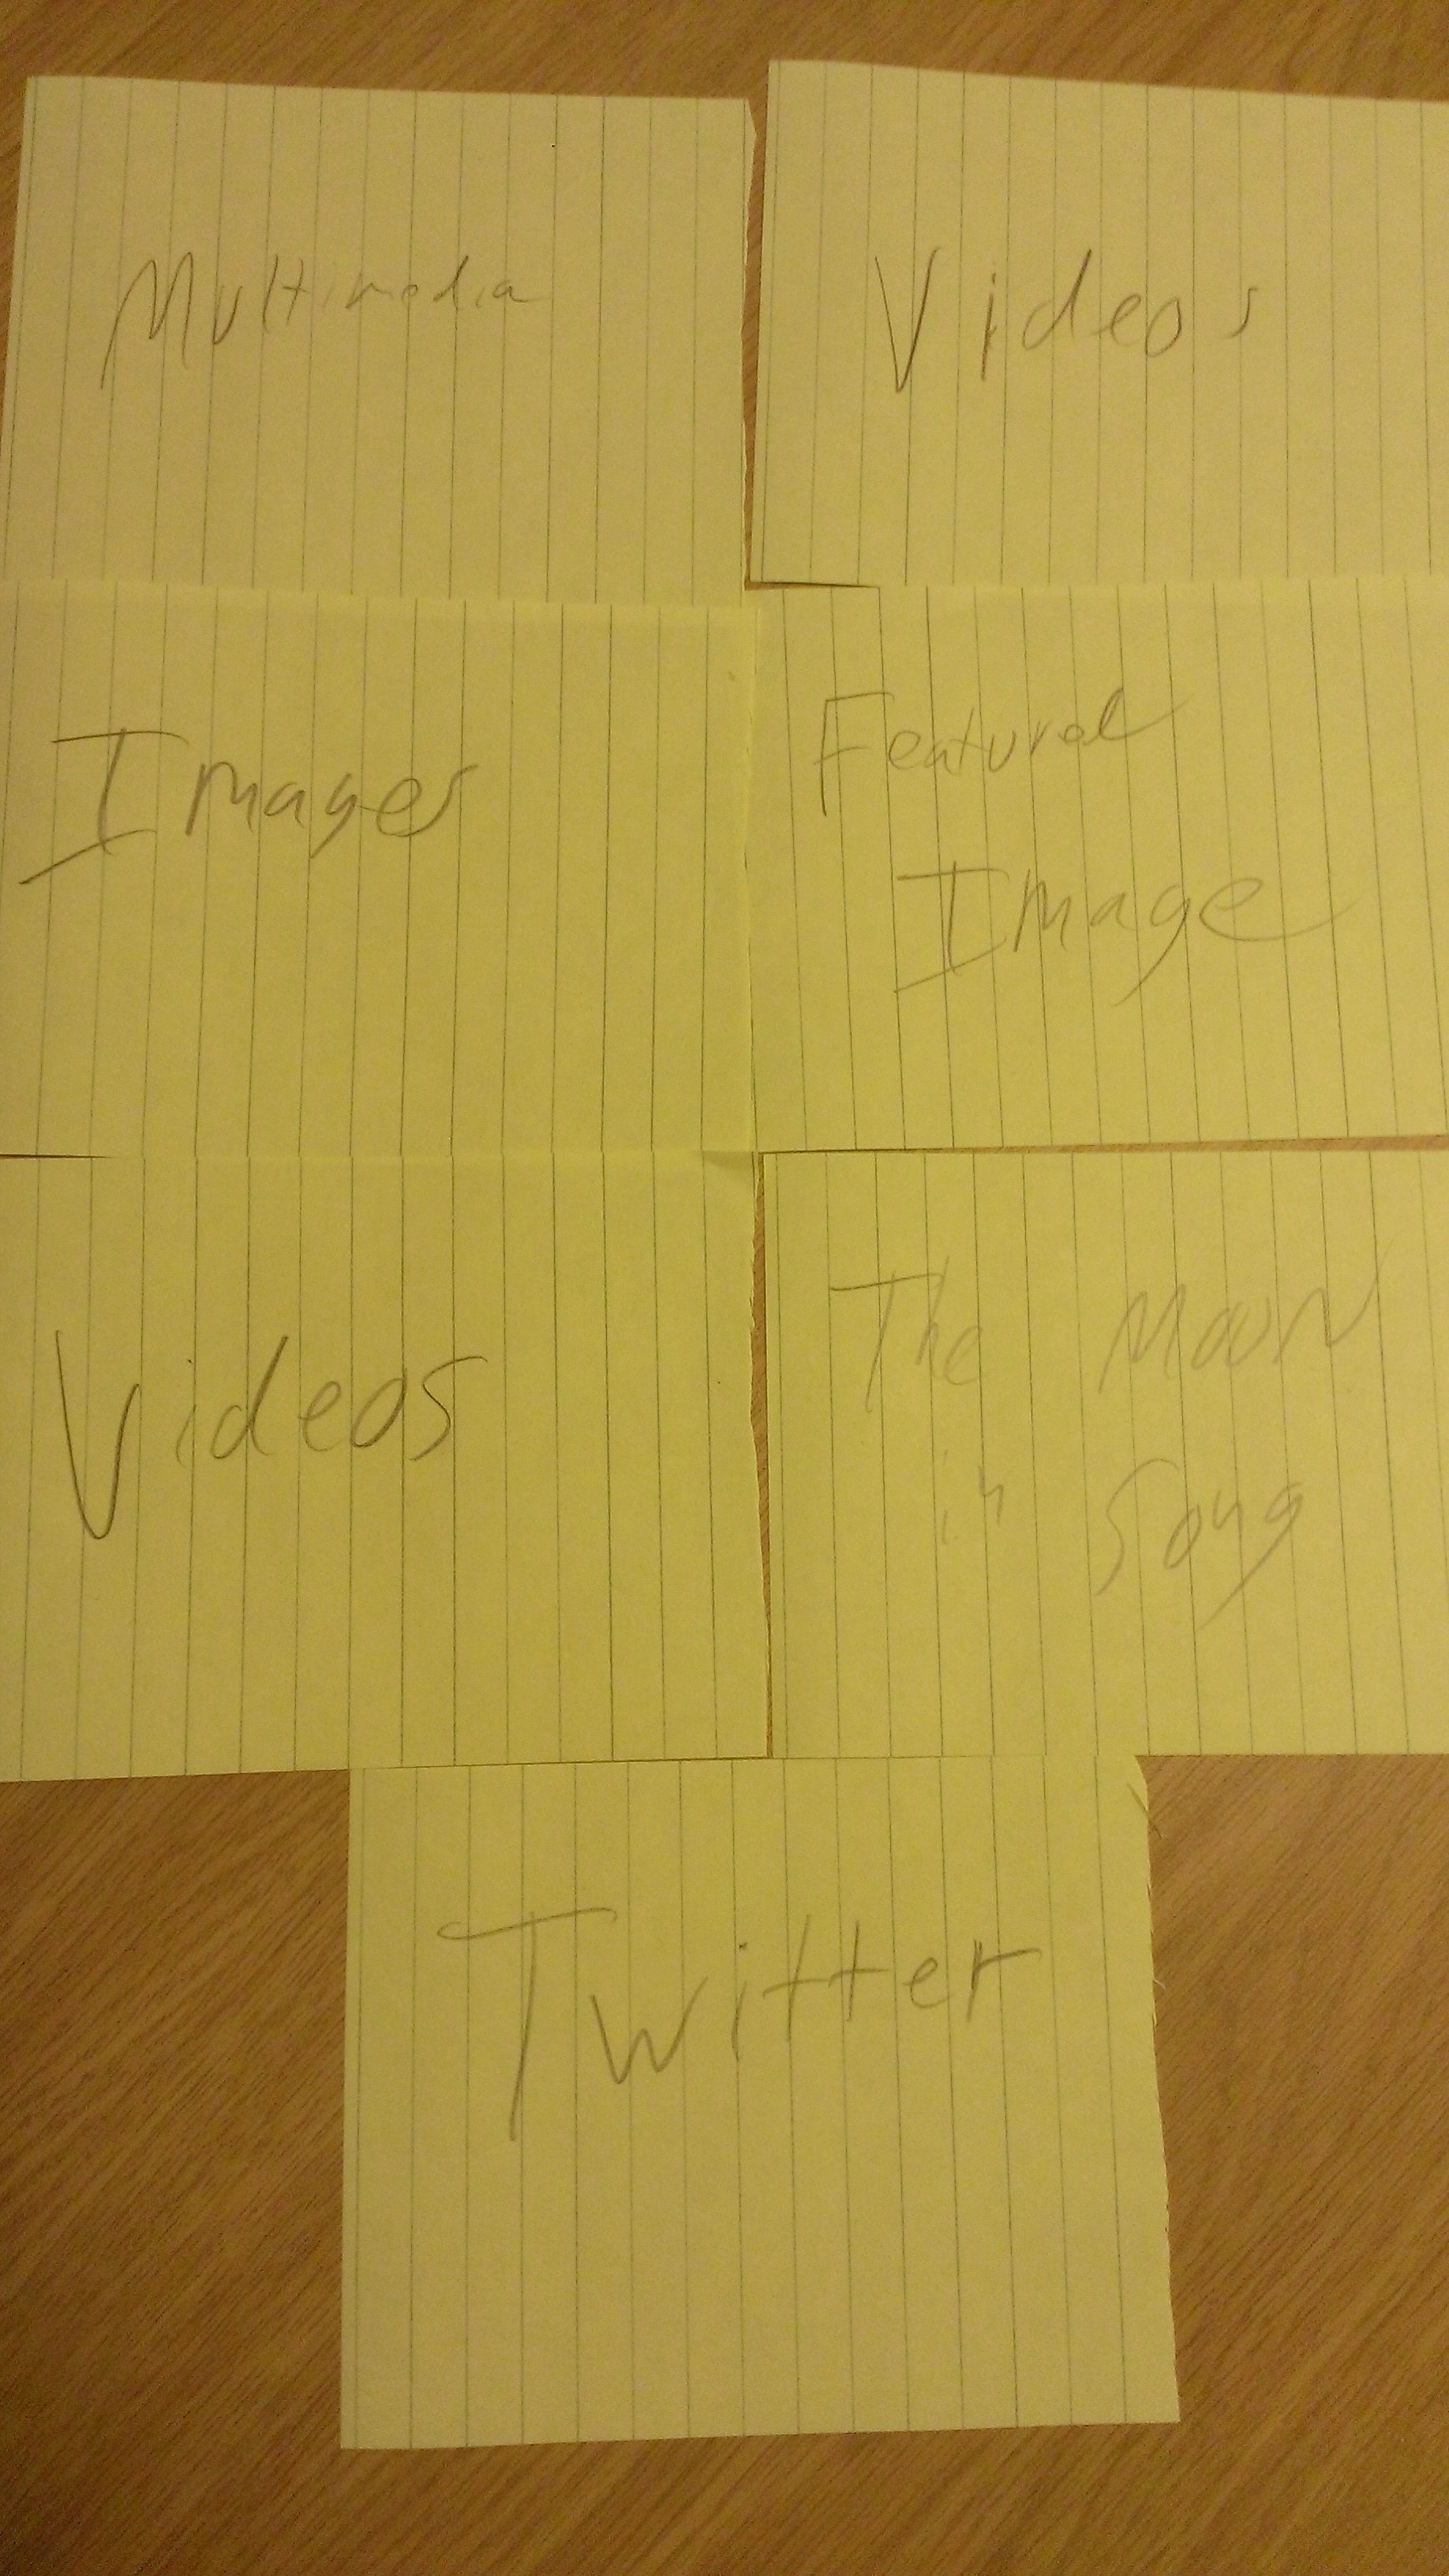 Multimedia
Videos
Images
Featured
Image
Videos
The Moon
in Song
Twitter